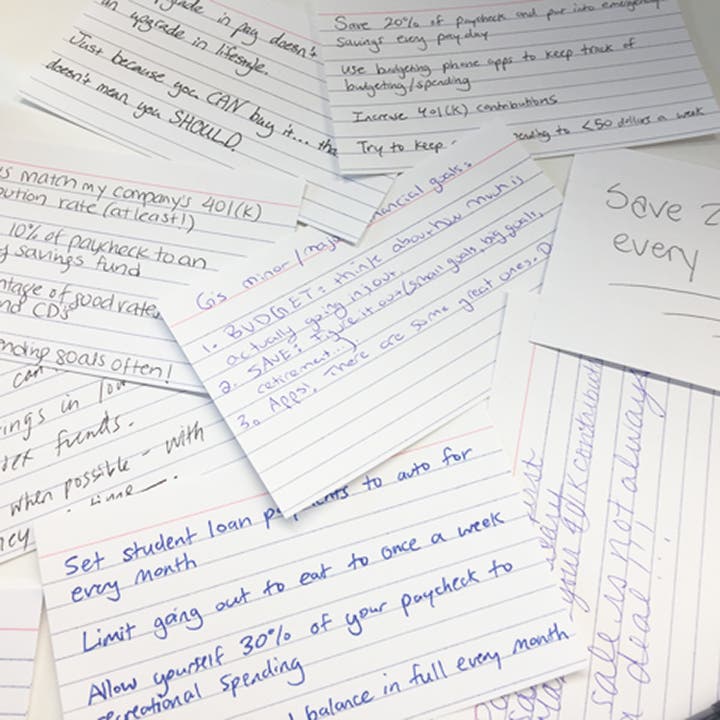 grade in pay doesn't
an upgrade in lifestyle.
Just because you CAN buy it... tha
doesn't mean you SHOULD.
Save 20% of paycheck and put into emergency
savings every pay day
use budgeting phone apps to keep track of
budgeting/spending
Increase 401(K) contributions
Try to keep
ending to <50 dollars a week
s match my company's 401(K)
bution rate (at least!)
10% of paycheck to an
y savings fund
ntage of good rates
nd CDs
nding goals often!
G's minor/major
nancial goals:
1. BUDGET: think about how much is
actually going in/out.
2. SAVE: Figure it out (small goals, big goals,
retirement...)
3. Apps! There are some great ones. :D
Save 2
every
can
ings in low
dex funds.
when possible - with
time
ney
Set student loan payments to auto for
every month
Limit going out to eat to once a week
Allow yourself 30% of your paycheck to
recreational spending
balance in full every month
your 401K contribut
sale is not always
deal!!!